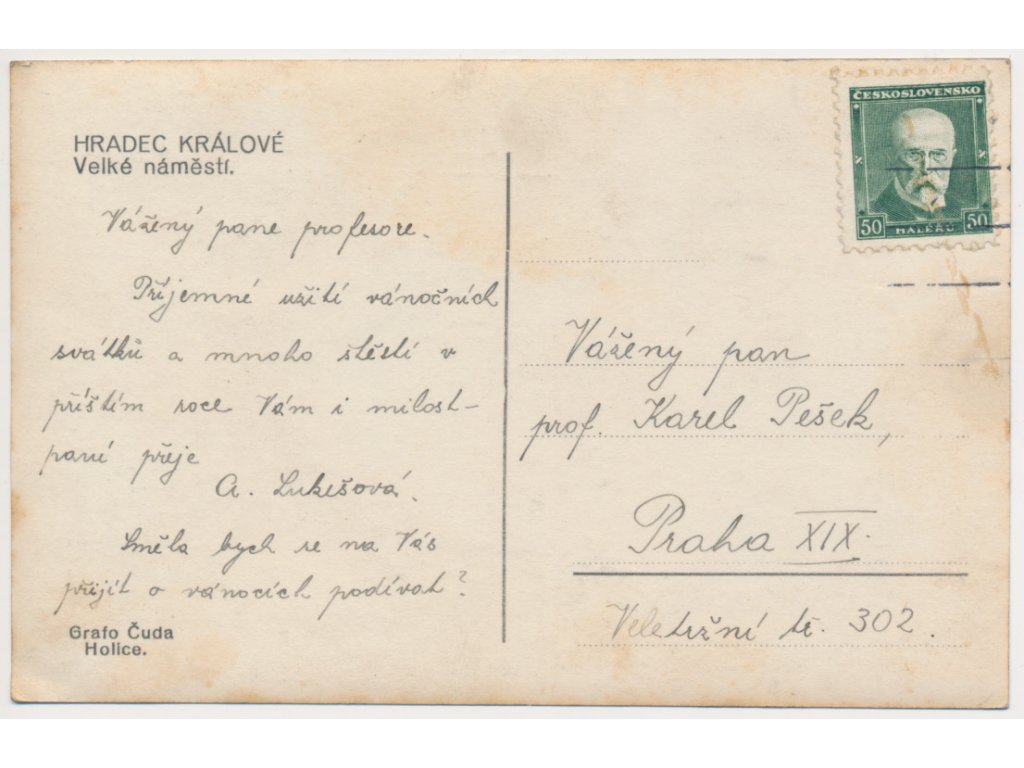 HRADEC KRÁLOVÉ
Velké náměstí.
Vážený pane profesore.
Příjemné užití vánočních
svátků a mnoho štěstí v
příštím roce Vám i milost-
paní přeje
A. Lukešová.
Směla bych se na Vás
přijít o vánocích podívat?
Grafo Čuda
Holice.
ČESKOSLOVENSKO
50 HALÉŘŮ 50
Vážený pan
prof. Karel Pešek,
Praha XIX.
Veletržní tř. 302.